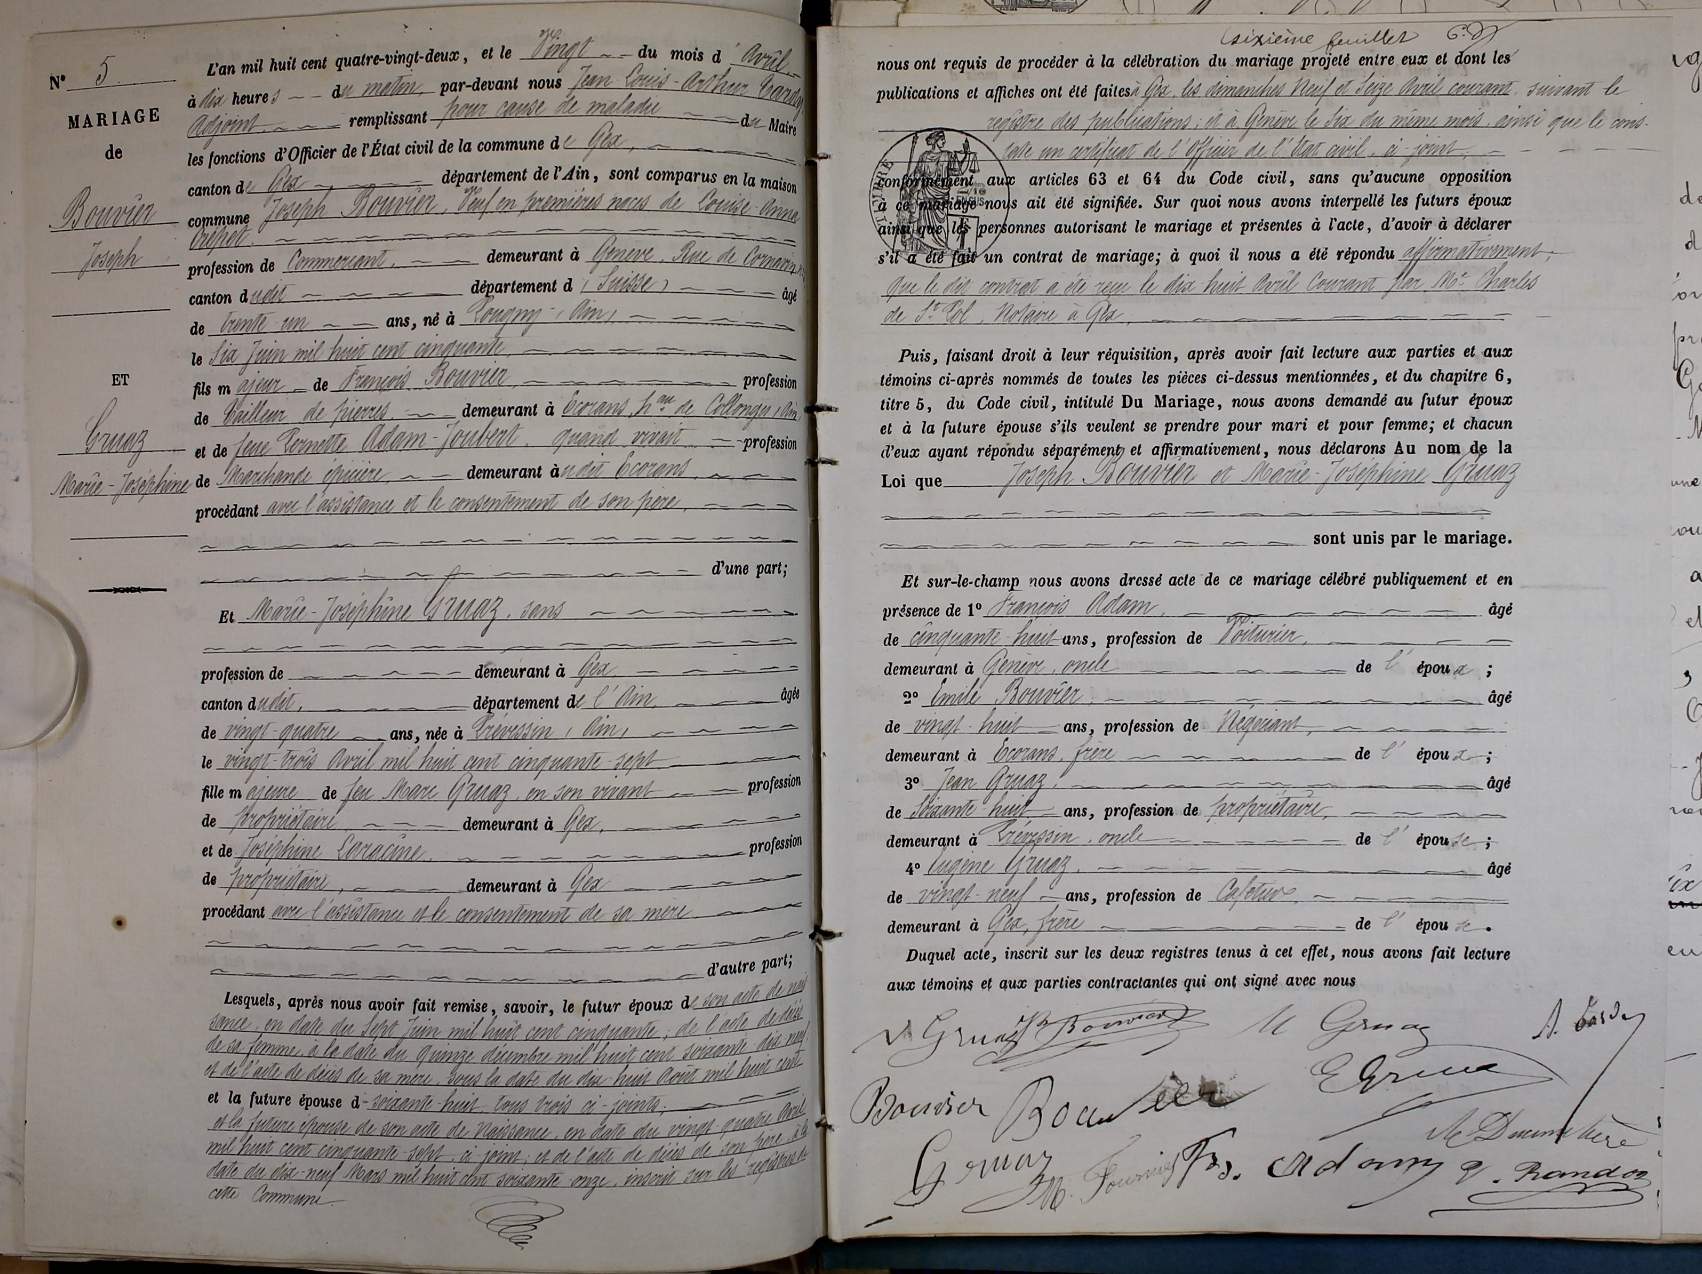 N° 5
MARIAGE
de
Bouvier
Joseph
ET
Gruaz
Marie-Joséphine
L'an mil huit cent quatre-vingt-deux, et le Vingt du mois d'Avril
à dix heures du matin par-devant nous Jean Louis-Arthur
Adjoint remplissant pour cause de maladie du Maire
les fonctions d'Officier de l'État civil de la commune de Gex,
canton de Gex département de l'Ain, sont comparus en la maison
commune Joseph Bouvier, Veuf en premières noces de Louise-Anna
profession de Commerçant, demeurant à Genève, Rue de Cornavin
canton dudit département d (Suisse) âgé
de trente-un ans, né à Pougny (Ain)
le Six Juin mil huit cent cinquante,
fils majeur de François Bouvier, profession
de Tailleur de pierres, demeurant à Ecorans, hau de Collonges, Ain
et de feue Pernette Adam-Joubert, quand vivait profession
de Marchande épicière, demeurant audit Ecorans,
procédant avec l'assistance et le consentement de son père,
d'une part;
Et Marie-Joséphine Gruaz, sans
profession de demeurant à Gex
canton dudit, département de l'Ain âgée
de vingt-quatre ans, née à Prévessin (Ain)
le vingt-trois Avril mil huit cent cinquante-sept
fille majeure de feu Marc Gruaz, en son vivant profession
de propriétaire, demeurant à Gex,
et de Joséphine profession
de propriétaire, demeurant à Gex
procédant avec l'assistance et le consentement de sa mère
d'autre part;
Lesquels, après nous avoir fait remise, savoir, le futur époux de son acte de nais
sance, en date du Sept Juin mil huit cent cinquante; de l'acte de décès
de sa femme, à la date du quinze décembre mil huit cent soixante dix neuf
et de l'acte de décès de sa mère, sous la date du dix-huit Août mil huit cent
et la future épouse d soixante-huit, tous trois ci-joints;
et la future épouse de son acte de Naissance, en date du vingt quatre Avril
mil huit cent cinquante-sept, ci joint; et de l'acte de décès de son père, à la
date du dix-neuf Mars mil huit cent soixante-onze, inscrit sur les registres de
cette Commune.
sixième feuillet
nous ont requis de procéder à la célébration du mariage projeté entre eux et dont les
publications et affiches ont été faites à Gex, les dimanches Neuf et Seize Avril courant, suivant le
registre des publications; et à Genève le Six du même mois, ainsi que le cons-
tate un certificat de l'Officier de l'Etat civil, ci-joint,
conformément aux articles 63 et 64 du Code civil, sans qu'aucune opposition
à ce mariage nous ait été signifiée. Sur quoi nous avons interpellé les futurs époux
ainsi que les personnes autorisant le mariage et présentes à l'acte, d'avoir à déclarer
s'il a été fait un contrat de mariage; à quoi il nous a été répondu affirmativement,
que le dit contrat a été reçu le dix huit Avril Courant par Me Charles
de St Pol, Notaire à Gex,
Puis, faisant droit à leur réquisition, après avoir fait lecture aux parties et aux
témoins ci-après nommés de toutes les pièces ci-dessus mentionnées, et du chapitre 6,
titre 5, du Code civil, intitulé Du Mariage, nous avons demandé au futur époux
et à la future épouse s'ils veulent se prendre pour mari et pour femme; et chacun
d'eux ayant répondu séparément et affirmativement, nous déclarons Au nom de la
Loi que Joseph Bouvier et Marie-Joséphine Gruaz
sont unis par le mariage.
Et sur-le-champ nous avons dressé acte de ce mariage célébré publiquement et en
présence de 1° François Adam, âgé
de cinquante-huit ans, profession de Voiturier,
demeurant à Genève, oncle de l'époux;
2° Emile Bouvier, âgé
de vingt-huit ans, profession de Négociant,
demeurant à Ecorans, frère de l'époux;
3° Jean Gruaz, âgé
de Soixante-huit ans, profession de propriétaire,
demeurant à Prévessin, oncle de l'épouse;
4° Eugène Gruaz, âgé
de vingt-neuf ans, profession de Cafetier
demeurant à Gex, frère de l'épouse.
Duquel acte, inscrit sur les deux registres tenus à cet effet, nous avons fait lecture
aux témoins et aux parties contractantes qui ont signé avec nous
Gruaz Bouvier M Gruaz
Bouvier Bouvier E Gruaz
Gruaz M. Fournier Fs. Adam